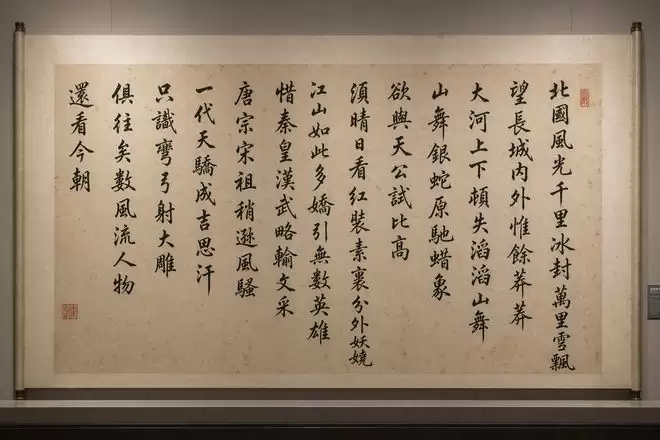 北國風光千里冰封萬里雪飄
望長城內外惟餘莽莽
大河上下頓失滔滔山舞
山舞銀蛇原馳蜡象
欲與天公試比高
須晴日看紅裝素裹分外妖嬈
江山如此多嬌引無數英雄
惜秦皇漢武略輸文采
唐宗宋祖稍遜風騷
一代天驕成吉思汗
只識彎弓射大雕
俱往矣数風流人物
還看今朝